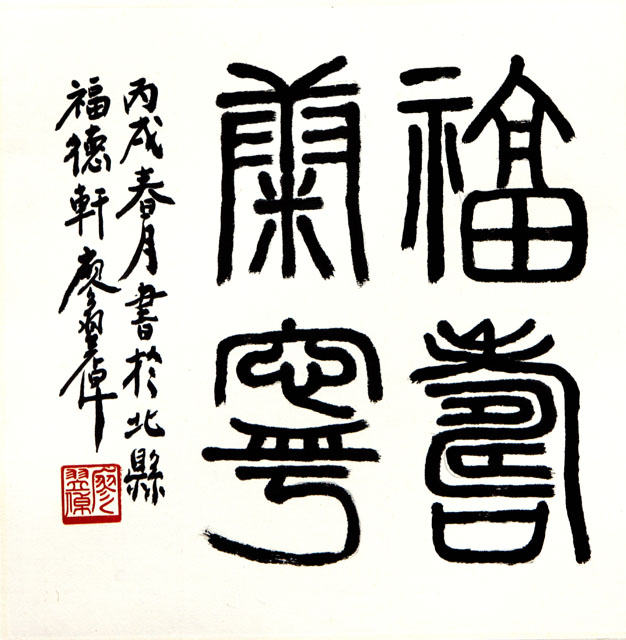 福壽
康寧
丙戌春月書於北縣
福德軒廖翌倬